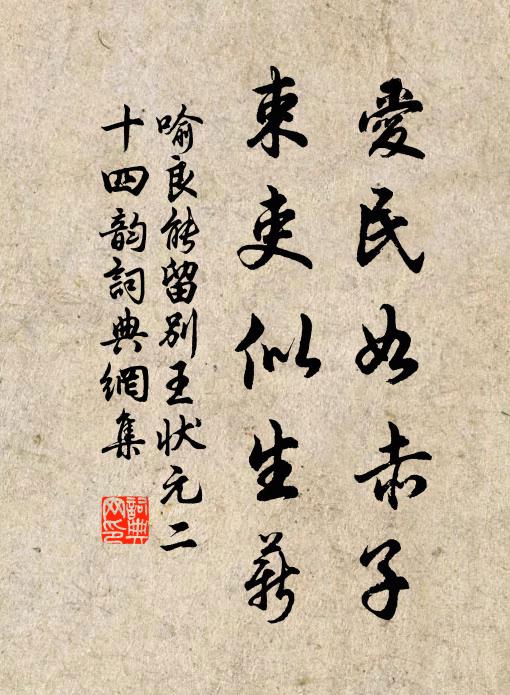 愛民如赤子
束吏似生薪
喻良能留別王狀元二
十四韵詞典網集
詞典
网印